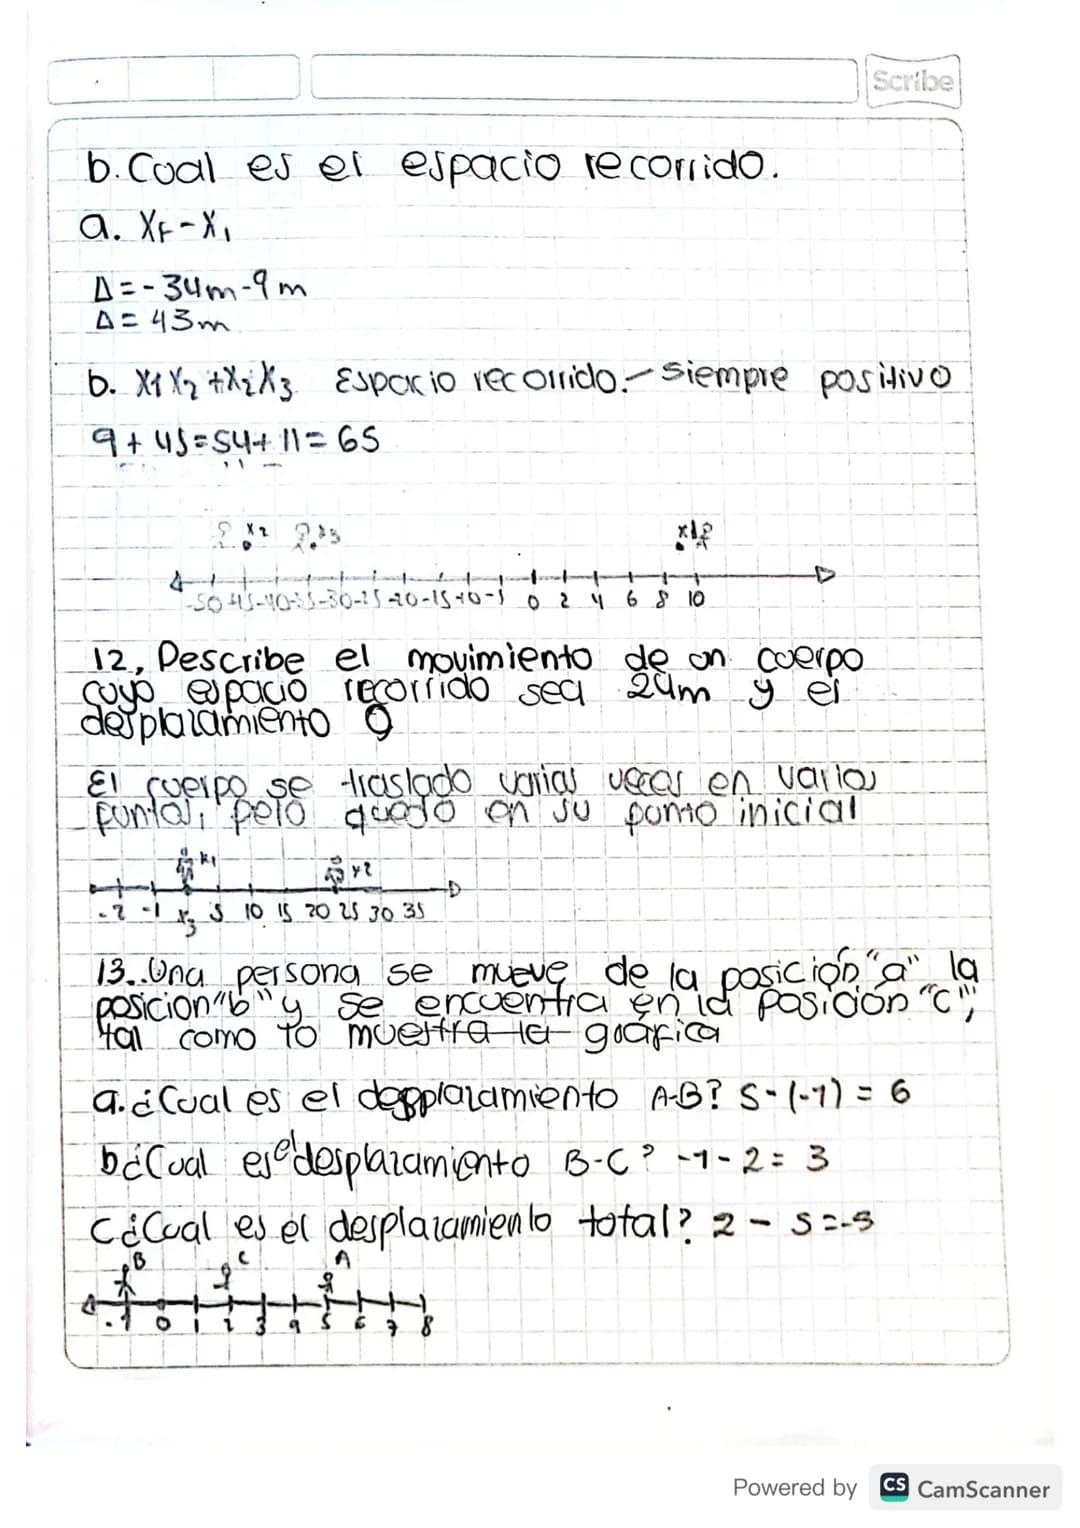 Scribe
b. Cual es el espacio recorrido.
a. XF - X1
Δ = - 34m - 9 m
Δ = 43m
b. X1 X2 + X2 X3 Espacio recorrido.- siempre positivo
9 + 45 = 54 + 11 = 65
x2 x3 x1
-50 -45 -40 -35 -30 -25 -20 -15 -10 -5 0 2 4 6 8 10
12, Describe el movimiento de un cuerpo
cuyo espacio recorrido sea 24m y el
desplazamiento 0
El cuerpo se traslado varias veces en varios
puntos, pero quedo en su punto inicial
x1 x2
-2 -1 x3 5 10 15 20 25 30 35
13. Una persona se mueve de la posición "a" la
posicion "b" y se encuentra en la posición "c",
tal como lo muestra la gráfica
a. ¿Cual es el desplazamiento A-B? 5 - (-1) = 6
b ¿Cual es el desplazamiento B-C? -1 - 2 = 3
C ¿Cual es el desplazamiento total? 2 - 5 = -5
B C A
-1 0 1 2 3 4 5 6 7 8
Powered by CS CamScanner